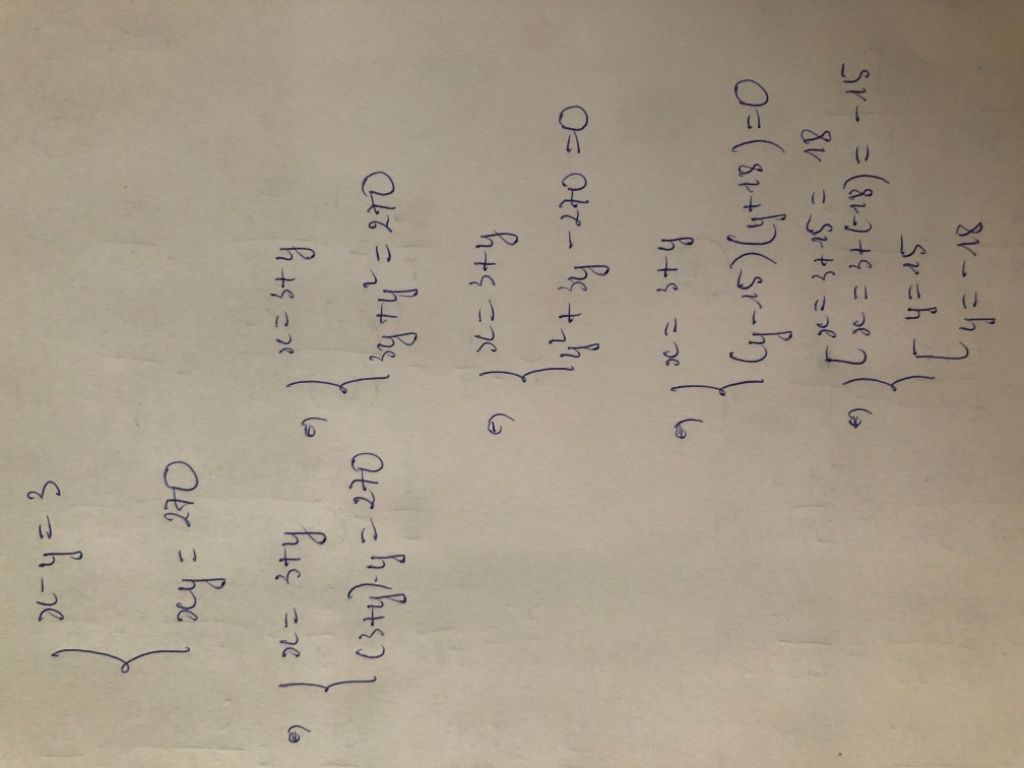 { x - y = 3
xy = 270
⇔ { x = 3+y
(3+y)·y = 270
⇔ { x = 3+y
3y + y² = 270
⇔ { x = 3+y
y² + 3y - 270 = 0
⇔ { x = 3+y
(y-15)(y+18) = 0
⇔ { [ x = 3+15 = 18
x = 3+(-18) = -15
[ y = 15
y = -18